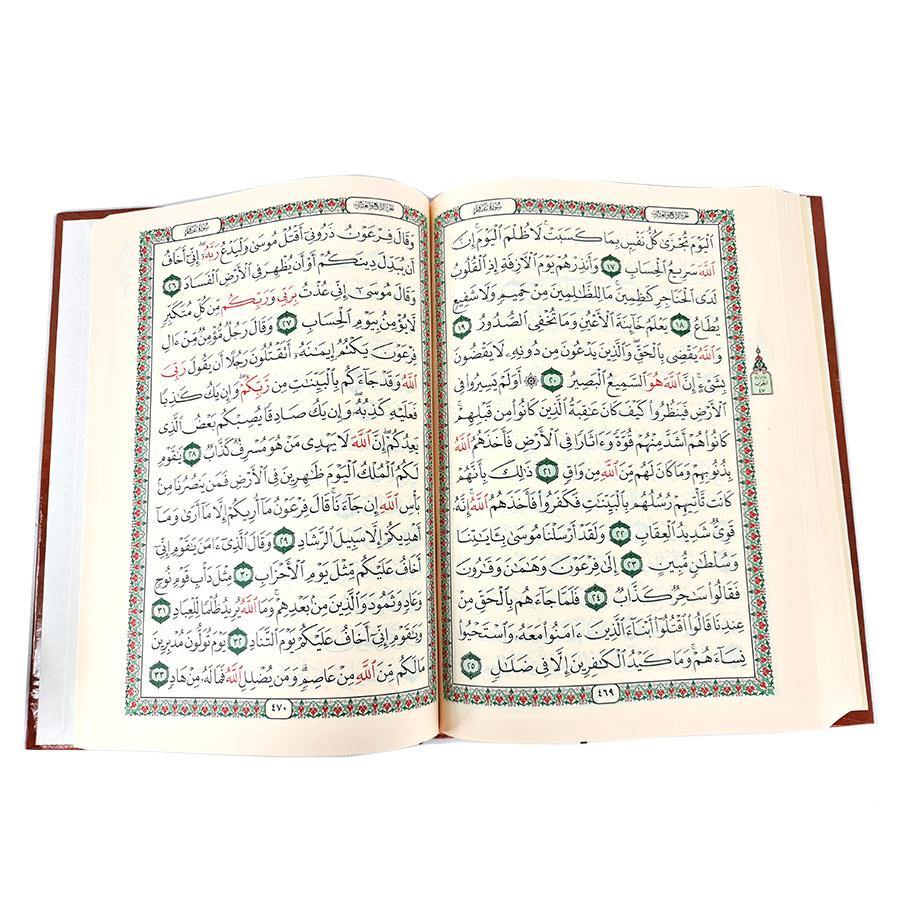 الجزء الرابع والعشرون
سورة غافر
ٱلْيَوْمَ تُجْزَىٰ كُلُّ نَفْسٍۭ بِمَا كَسَبَتْ لَا ظُلْمَ ٱلْيَوْمَ إِنَّ
ٱللَّهَ سَرِيعُ ٱلْحِسَابِ ١٧ وَأَنذِرْهُمْ يَوْمَ ٱلْءَازِفَةِ إِذِ ٱلْقُلُوبُ
لَدَى ٱلْحَنَاجِرِ كَٰظِمِينَ مَا لِلظَّٰلِمِينَ مِنْ حَمِيمٍ وَلَا شَفِيعٍ
يُطَاعُ ١٨ يَعْلَمُ خَآئِنَةَ ٱلْأَعْيُنِ وَمَا تُخْفِى ٱلصُّدُورُ ١٩
وَٱللَّهُ يَقْضِى بِٱلْحَقِّ وَٱلَّذِينَ يَدْعُونَ مِن دُونِهِۦ لَا يَقْضُونَ
بِشَىْءٍ إِنَّ ٱللَّهَ هُوَ ٱلسَّمِيعُ ٱلْبَصِيرُ ٢٠ ۞ أَوَلَمْ يَسِيرُوا۟ فِى
ٱلْأَرْضِ فَيَنظُرُوا۟ كَيْفَ كَانَ عَٰقِبَةُ ٱلَّذِينَ كَانُوا۟ مِن قَبْلِهِمْ
كَانُوا۟ هُمْ أَشَدَّ مِنْهُمْ قُوَّةً وَءَاثَارًا فِى ٱلْأَرْضِ فَأَخَذَهُمُ ٱللَّهُ
بِذُنُوبِهِمْ وَمَا كَانَ لَهُم مِّنَ ٱللَّهِ مِن وَاقٍ ٢١ ذَٰلِكَ بِأَنَّهُمْ
كَانَت تَّأْتِيهِمْ رُسُلُهُم بِٱلْبَيِّنَٰتِ فَكَفَرُوا۟ فَأَخَذَهُمُ ٱللَّهُ إِنَّهُۥ
قَوِىٌّ شَدِيدُ ٱلْعِقَابِ ٢٢ وَلَقَدْ أَرْسَلْنَا مُوسَىٰ بِـَٔايَٰتِنَا
وَسُلْطَٰنٍ مُّبِينٍ ٢٣ إِلَىٰ فِرْعَوْنَ وَهَٰمَٰنَ وَقَٰرُونَ
فَقَالُوا۟ سَٰحِرٌ كَذَّابٌ ٢٤ فَلَمَّا جَآءَهُم بِٱلْحَقِّ مِنْ
عِندِنَا قَالُوا۟ ٱقْتُلُوٓا۟ أَبْنَآءَ ٱلَّذِينَ ءَامَنُوا۟ مَعَهُۥ وَٱسْتَحْيُوا۟
نِسَآءَهُمْ وَمَا كَيْدُ ٱلْكَٰفِرِينَ إِلَّا فِى ضَلَٰلٍ ٢٥
٤٦٩
الجزء الرابع والعشرون
سورة غافر
وَقَالَ فِرْعَوْنُ ذَرُونِىٓ أَقْتُلْ مُوسَىٰ وَلْيَدْعُ رَبَّهُۥٓ إِنِّىٓ أَخَافُ
أَن يُبَدِّلَ دِينَكُمْ أَوْ أَن يُظْهِرَ فِى ٱلْأَرْضِ ٱلْفَسَادَ ٢٦
وَقَالَ مُوسَىٰٓ إِنِّى عُذْتُ بِرَبِّى وَرَبِّكُم مِّن كُلِّ مُتَكَبِّرٍ
لَّا يُؤْمِنُ بِيَوْمِ ٱلْحِسَابِ ٢٧ وَقَالَ رَجُلٌ مُّؤْمِنٌ مِّنْ ءَالِ
فِرْعَوْنَ يَكْتُمُ إِيمَٰنَهُۥٓ أَتَقْتُلُونَ رَجُلًا أَن يَقُولَ رَبِّىَ
ٱللَّهُ وَقَدْ جَآءَكُم بِٱلْبَيِّنَٰتِ مِن رَّبِّكُمْ وَإِن يَكُ كَٰذِبًا
فَعَلَيْهِ كَذِبُهُۥ وَإِن يَكُ صَادِقًا يُصِبْكُم بَعْضُ ٱلَّذِى
يَعِدُكُمْ إِنَّ ٱللَّهَ لَا يَهْدِى مَنْ هُوَ مُسْرِفٌ كَذَّابٌ ٢٨ يَٰقَوْمِ
لَكُمُ ٱلْمُلْكُ ٱلْيَوْمَ ظَٰهِرِينَ فِى ٱلْأَرْضِ فَمَن يَنصُرُنَا مِنۢ
بَأْسِ ٱللَّهِ إِن جَآءَنَا قَالَ فِرْعَوْنُ مَآ أُرِيكُمْ إِلَّا مَآ أَرَىٰ وَمَآ
أَهْدِيكُمْ إِلَّا سَبِيلَ ٱلرَّشَادِ ٢٩ وَقَالَ ٱلَّذِىٓ ءَامَنَ يَٰقَوْمِ إِنِّىٓ
أَخَافُ عَلَيْكُم مِّثْلَ يَوْمِ ٱلْأَحْزَابِ ٣٠ مِثْلَ دَأْبِ قَوْمِ نُوحٍ
وَعَادٍ وَثَمُودَ وَٱلَّذِينَ مِنۢ بَعْدِهِمْ وَمَا ٱللَّهُ يُرِيدُ ظُلْمًا لِّلْعِبَادِ ٣١
وَيَٰقَوْمِ إِنِّىٓ أَخَافُ عَلَيْكُمْ يَوْمَ ٱلتَّنَادِ ٣٢ يَوْمَ تُوَلُّونَ مُدْبِرِينَ
مَا لَكُم مِّنَ ٱللَّهِ مِنْ عَاصِمٍ وَمَن يُضْلِلِ ٱللَّهُ فَمَا لَهُۥ مِنْ هَادٍ ٣٣
٤٧٠